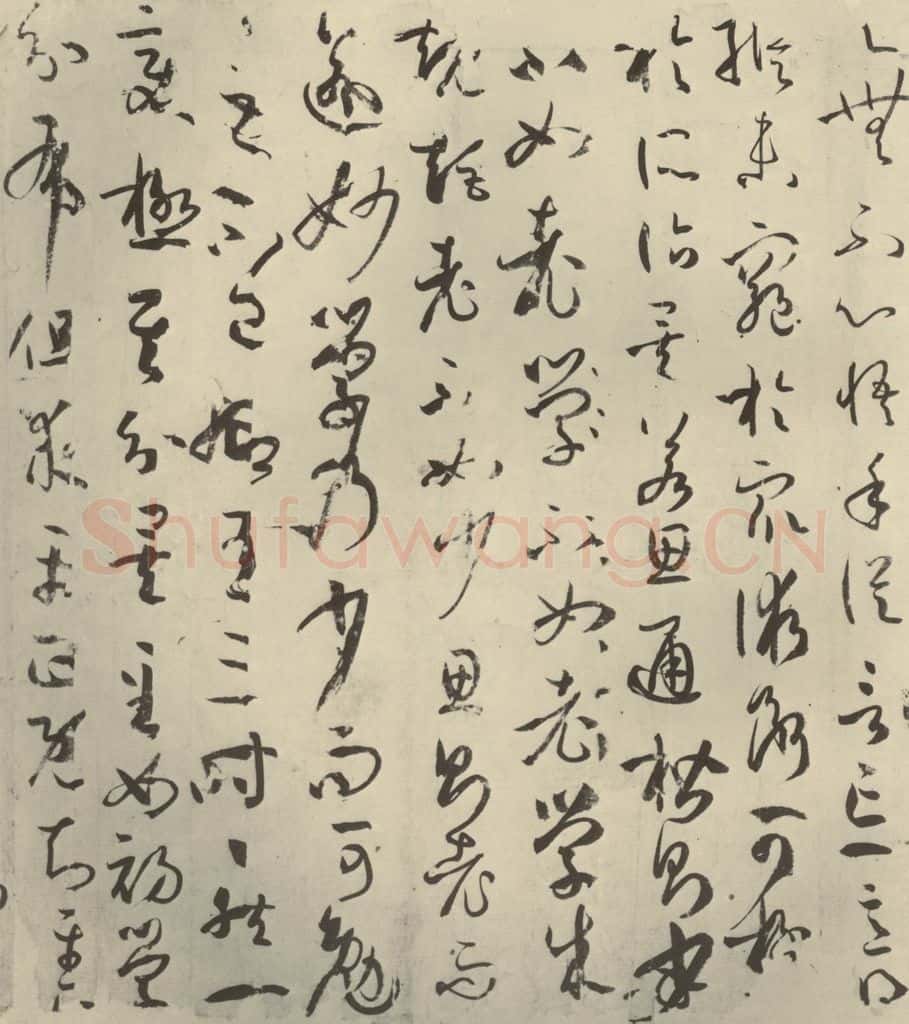 之無不心悟手從言忘意得
縱未窮於眾術斷可極
於所詣矣若思通楷則少
不如老學不如老學成
規矩老不如少思則老而
逾妙學乃少而可勉
〻之不已抑有三時〻然一
變極其分矣至如初學
分布但求平正既知平正
Shufawang.CN